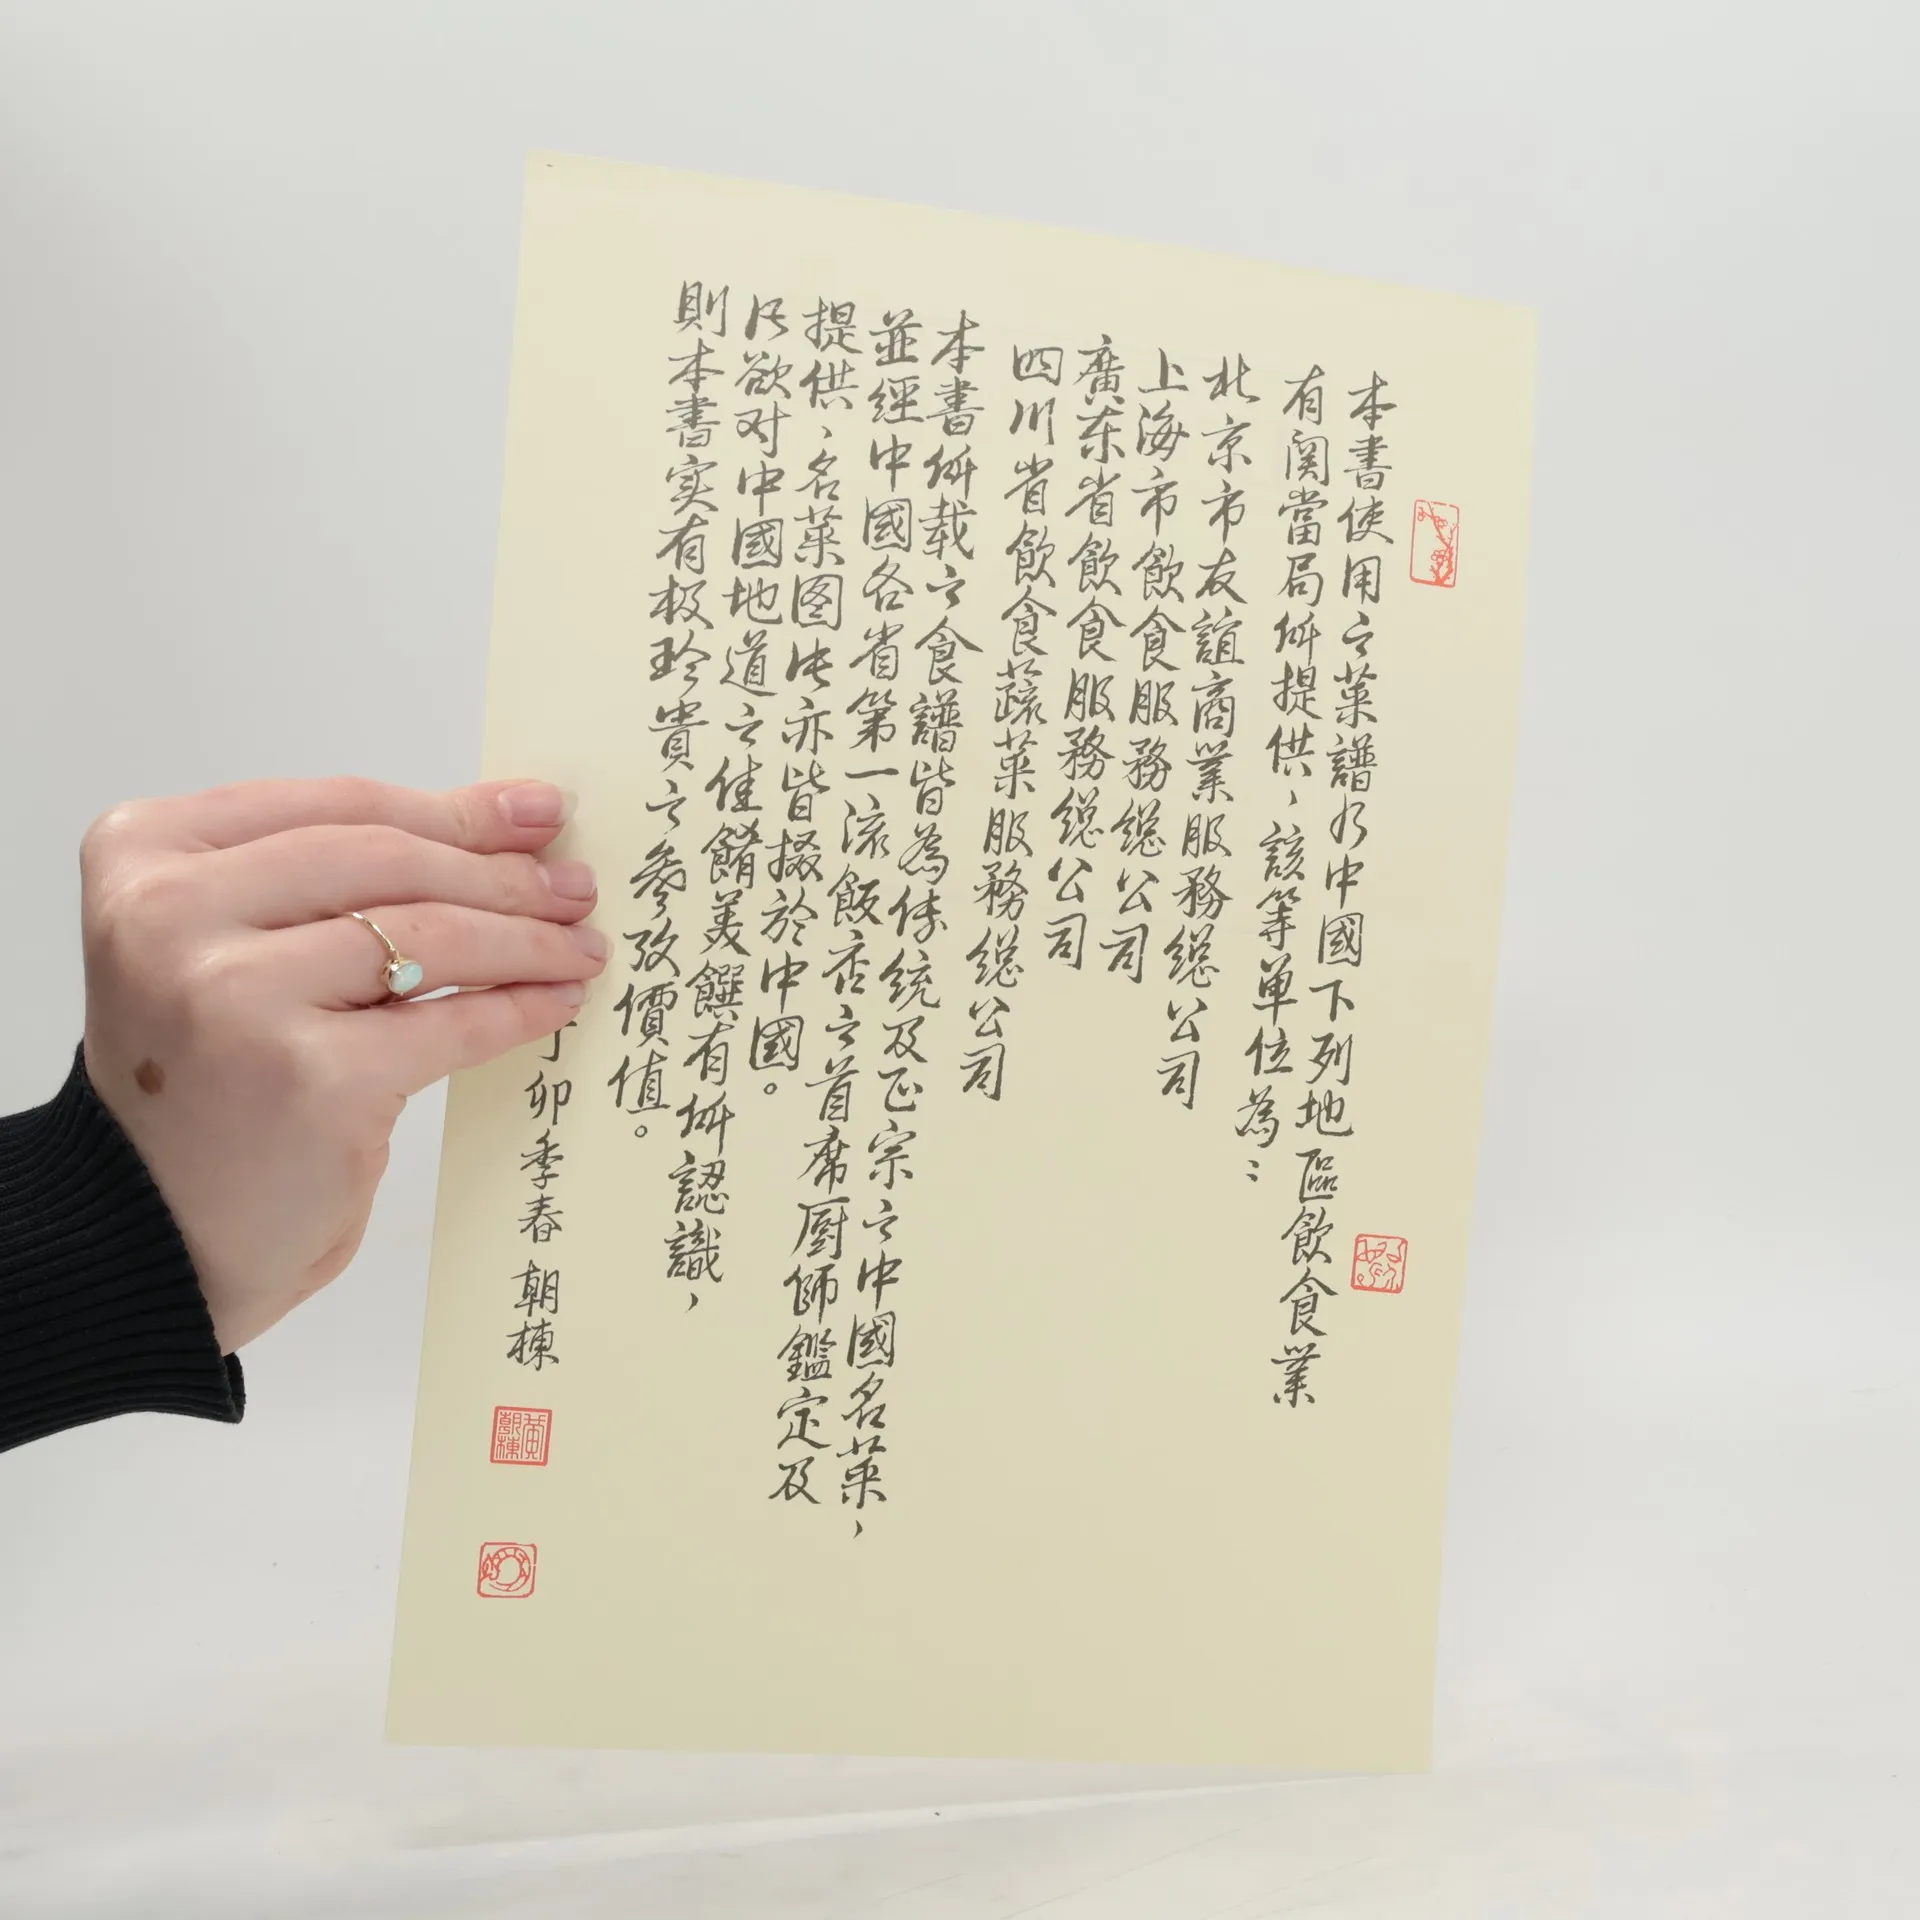 本書使用之菜譜乃中國下列地區飲食業
有関當局所提供、該等单位為：
北京市友誼商業服務總公司
上海市飲食服務總公司
廣东省飲食服務總公司
四川省飲食蔬菜服務總公司
本書所载之食譜皆為传統及正宗之中國名菜，
並經中國各省第一流飯店之首席厨師鑑定及
提供、名菜图片亦皆掇於中國。
欲对中國地道之佳餚美饌有所認識，
則本書实有极珍貴之參攷價值。
卯季春 朝棟
黃朝棟